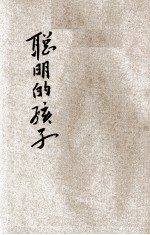 聪明的孩子